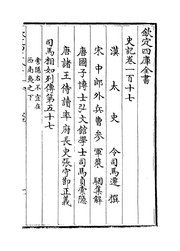 欽定四庫全書
史記卷一百十七
漢太史令司馬遷撰
宋中郎外兵曹參軍裴駰集解
唐國子博士弘文館學士司馬貞索隱
唐諸王侍讀率府長史張守節正義
司馬相如列傳第五十七
索隱曰不宜在
西南夷之下